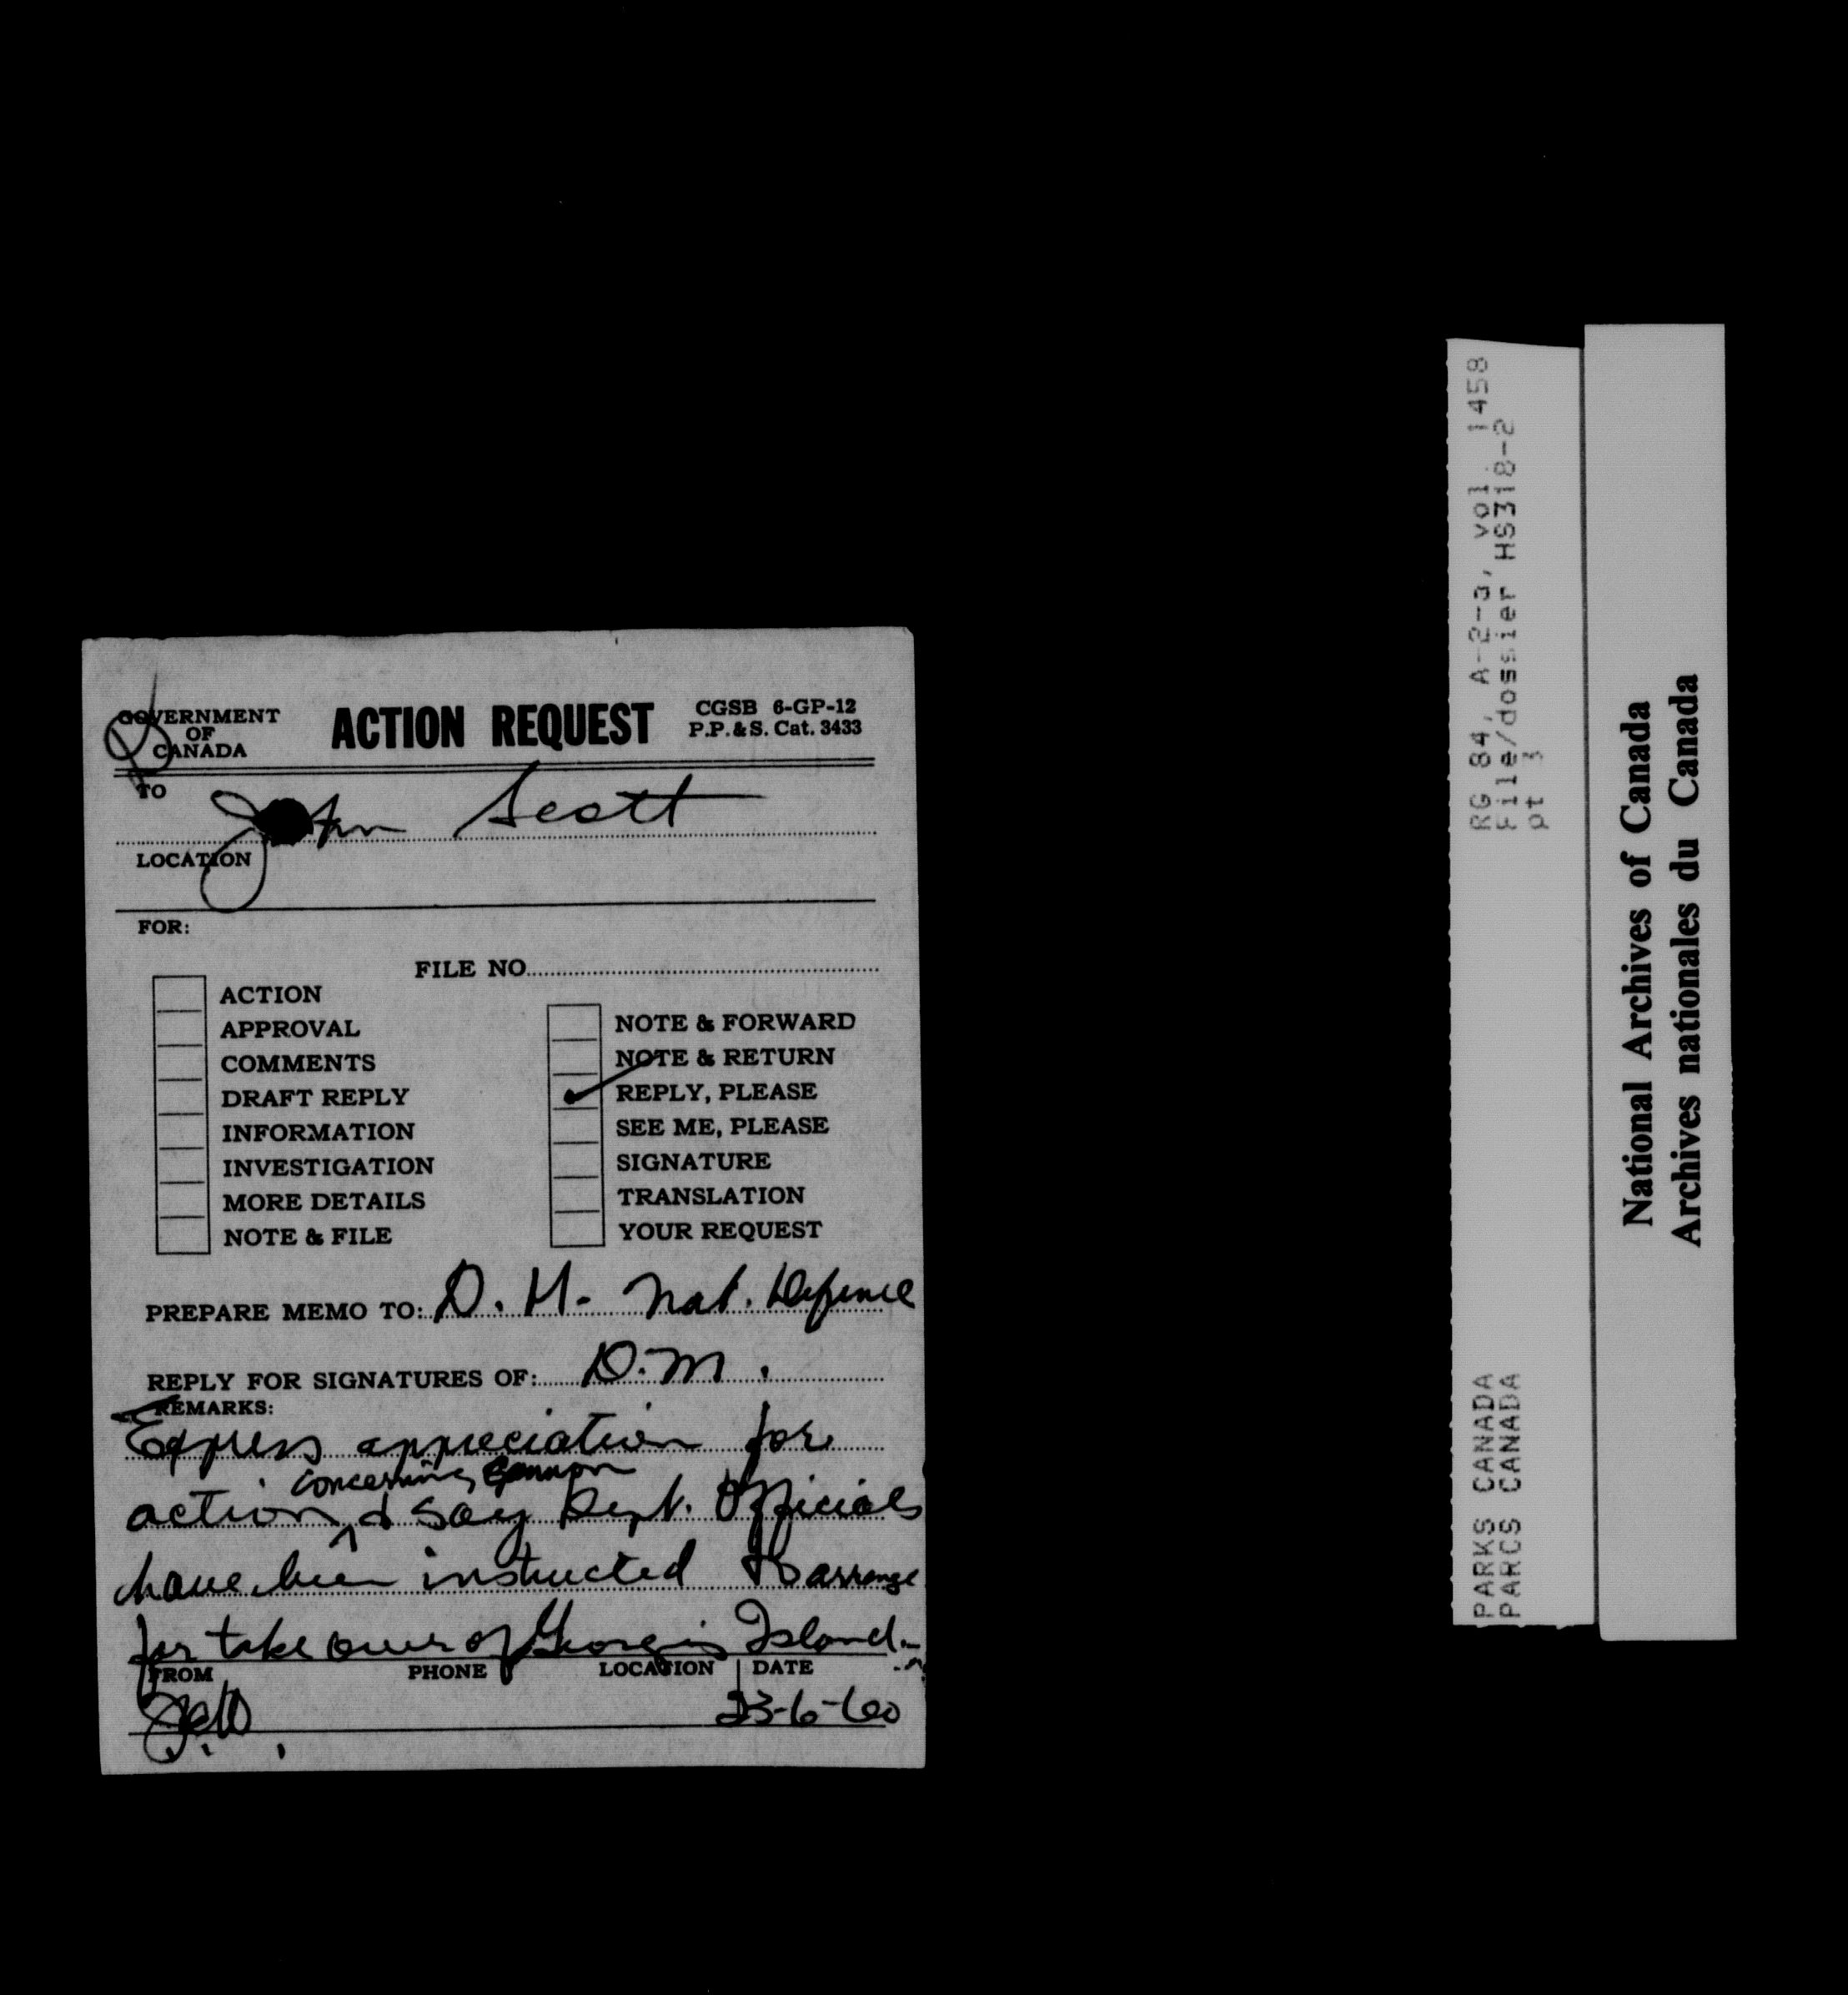 GOVERNMENT
OF
CANADA
ACTION REQUEST
CGSB 6-GP-12
P.P.&S. Cat. 3433
TO
John Scott
LOCATION
FOR:
FILE NO
ACTION
APPROVAL
COMMENTS
DRAFT REPLY
INFORMATION
INVESTIGATION
MORE DETAILS
NOTE & FILE
NOTE & FORWARD
NOTE & RETURN
REPLY, PLEASE
SEE ME, PLEASE
SIGNATURE
TRANSLATION
YOUR REQUEST
PREPARE MEMO TO: D. M. Nat. Defence
REPLY FOR SIGNATURES OF: D.M.
REMARKS:
Express appreciation for
concerning Cannon
action & say Dept. Officials
have been instructed to arrange
for take over of Georges Island.
FROM
PHONE
LOCATION
DATE
23-6-60
RG 84, A-2-a, vol. 1458
File/dossier HS318-2
pt 3
PARKS CANADA
PARCS CANADA
National Archives of Canada
Archives nationales du Canada